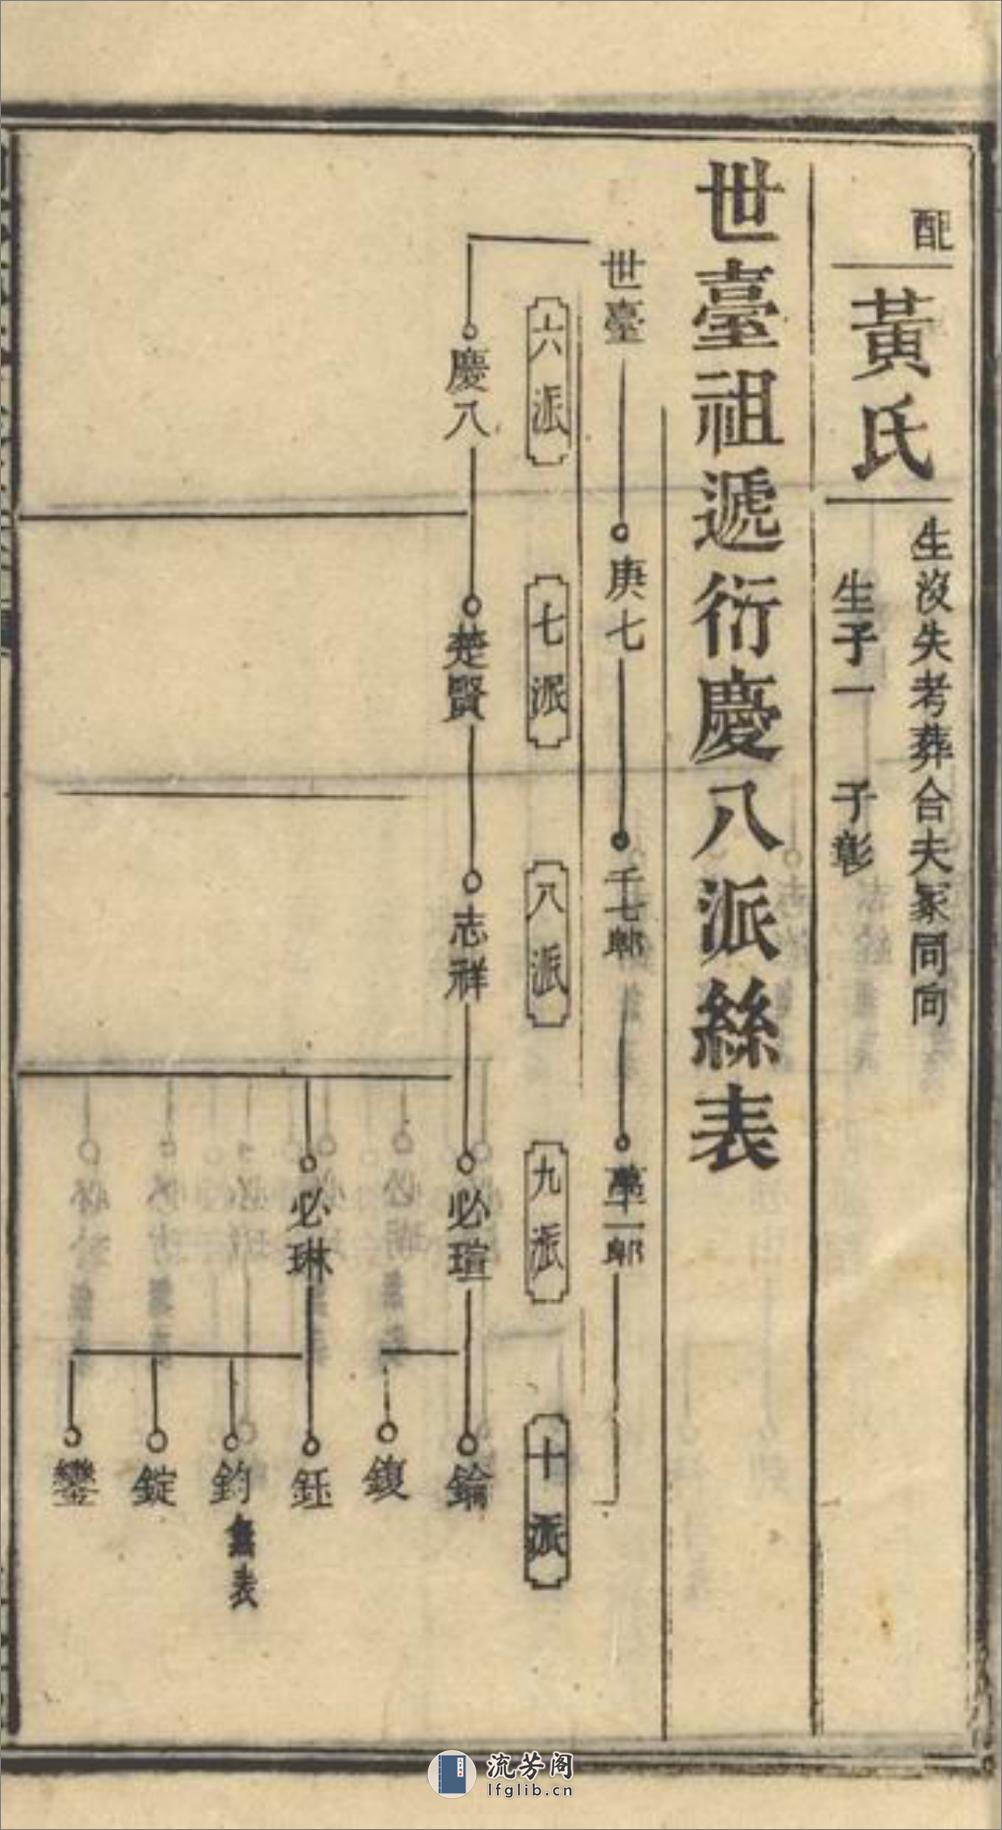 配
黃氏
生沒失考葬合夫冢同向
生子一 子彰
世臺祖遞衍慶八派絲表
世臺
庚七
千七郎
萬一郎
六派
七派
八派
九派
十派
慶八
楚賢
志祥
必瑄
錀
鍑
必琳
鈺
鈞
無表
錠
鑾
流芳阁
lfglib.cn